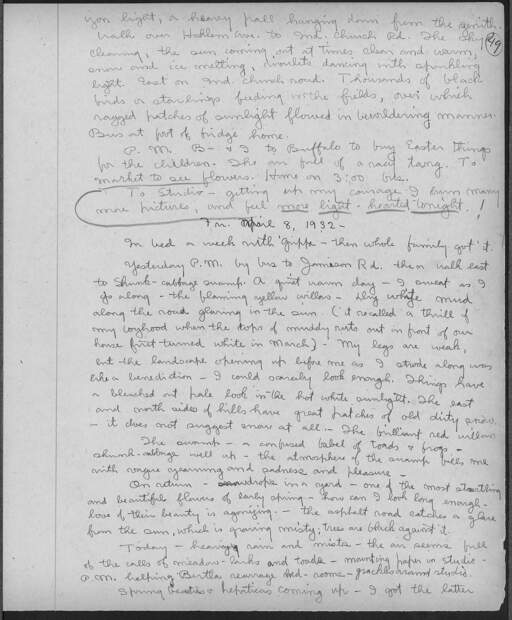 yon light, a heavy pall hanging down from the zenith.
Walk over Harlem Ave. to Ind. Church Rd. The sky 49
clearing, the sun coming out at times clear and warm,
snow and ice melting, rivulets dancing with sparkling
light East on Ind. Church road. Thousands of black
birds or starlings feeding in the fields, over which
ragged patches of sunlight flowed in bewildering manner.
Bus at foot of bridge home.
P.M. B- & I to Buffalo to buy Easter things
for the children. The air full of a racy tang. To
market to see flowers. Home on 3:00 bus.
To Studio - getting up my courage I burn many
more pictures, and feel more light-hearted tonight!
Fri. April 8, 1932 -
In bed a week with Grippe - then whole family got it.
Yesterday P.M. by bus to Jamison Rd. then walk east
to Skunk-cabbage swamp. A quiet warm day - I sweat as I
go along - the flaming yellow willows - dry white mud
along the road glaring in the sun. (it recalled a thrill of
my boyhood when the tops of muddy ruts out in front of our
house first turned white in March) - My legs are weak,
but the landscape opening up before me as I strode along was
like a benediction - I could scarcely look enough. Things have
a bleached out pale look in the hot white sunlight. The east
and north sides of hills have great patches of old dirty snow.
- it does not suggest snow at all - The brilliant red willows
The swamp - a confused babel of toads & frogs -
skunk-cabbage well up - the atmosphere of the swamp fills me
with vague yearning and sadness and pleasure -
On return - snowdrops in a yard - one of the most
and beautiful flowers of early spring - how can I look long enough -
loss of their beauty is agonizing - the asphalt road catches a glare
from the sun, which is growing misty; trees are black against it.
Today - heavy rain and mists - the air seems full
of the calls of meadow-larks and toads - mounting paper in Studio -
P.M. helping Bertha rearrange bed-room - grackles around studio.
Spring beauties & hepaticas coming up - I got the latter